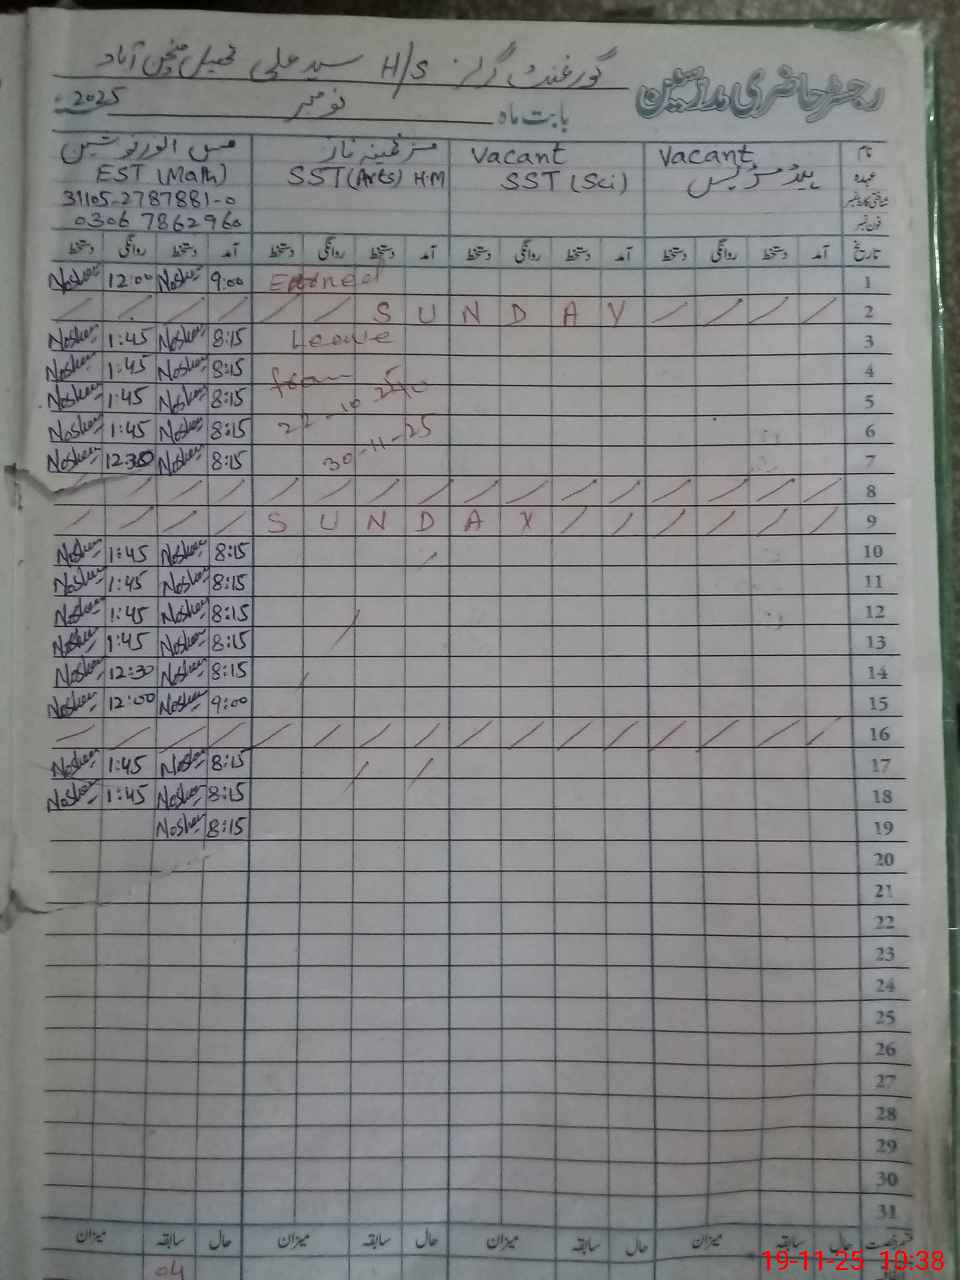 گورنمنٹ گرلز H/S سید علی تحصیل منچن آباد
رجسٹر حاضری مدرسین
بابت ماہ نومبر 2025ء
نام Vacant Vacant مسز ناز مس انور نوشین
عہدہ ہیڈ مسٹریس SST (Sci) SST (Arts) H.M EST (Math)
شناختی کارڈ نمبر 31105-2787881-0
فون نمبر 0306 7862960
تاریخ آمد دستخط روانگی دستخط آمد دستخط روانگی دستخط آمد دستخط روانگی دستخط آمد دستخط روانگی دستخط
1 Earned 9:00 Nosheen 12:00 Nosheen
2 / / / / S U N D A Y / / / / / /
3 Leave 8:15 Nosheen 1:45 Nosheen
4 from 8:15 Nosheen 1:45 Nosheen
5 22-10-25 to 8:15 Nosheen 1:45 Nosheen
6 30-11-25 8:15 Nosheen 1:45 Nosheen
7 8:15 Nosheen 12:30 Nosheen
8 / / / / / / / / / / / / / / / /
9 / / / / S U N D A Y / / / / / /
10 8:15 Nosheen 1:45 Nosheen
11 8:15 Nosheen 1:45 Nosheen
12 8:15 Nosheen 1:45 Nosheen
13 8:15 Nosheen 1:45 Nosheen
14 8:15 Nosheen 12:30 Nosheen
15 9:00 Nosheen 12:00 Nosheen
16 / / / / / / / / / / / / / / / /
17 8:15 Nosheen 1:45 Nosheen
18 8:15 Nosheen 1:45 Nosheen
19 8:15 Nosheen
20
21
22
23
24
25
26
27
28
29
30
31
قسم رخصت حال سابقہ میزان حال سابقہ میزان حال سابقہ میزان حال سابقہ میزان
04
19-11-25 10:38